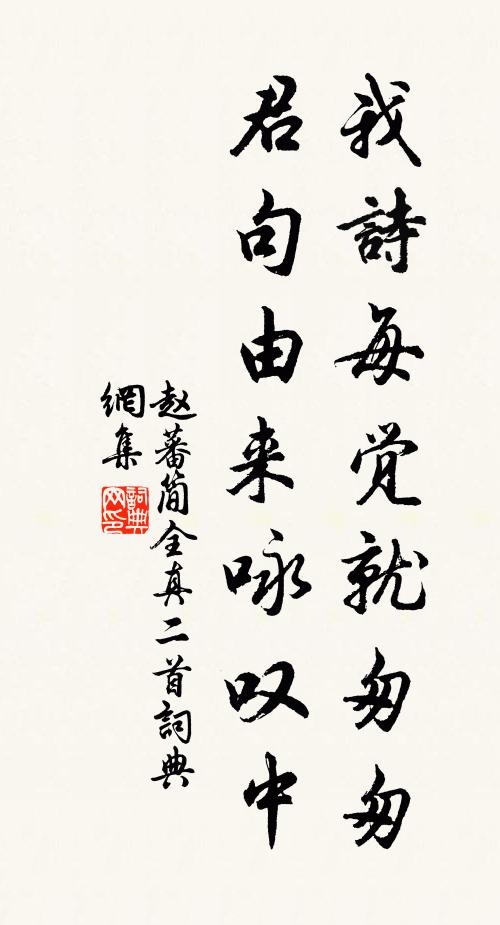 我詩每觉就匆匆
君句由来咏叹中
赵蕃简全真二首詞典
網集
詞典
网印